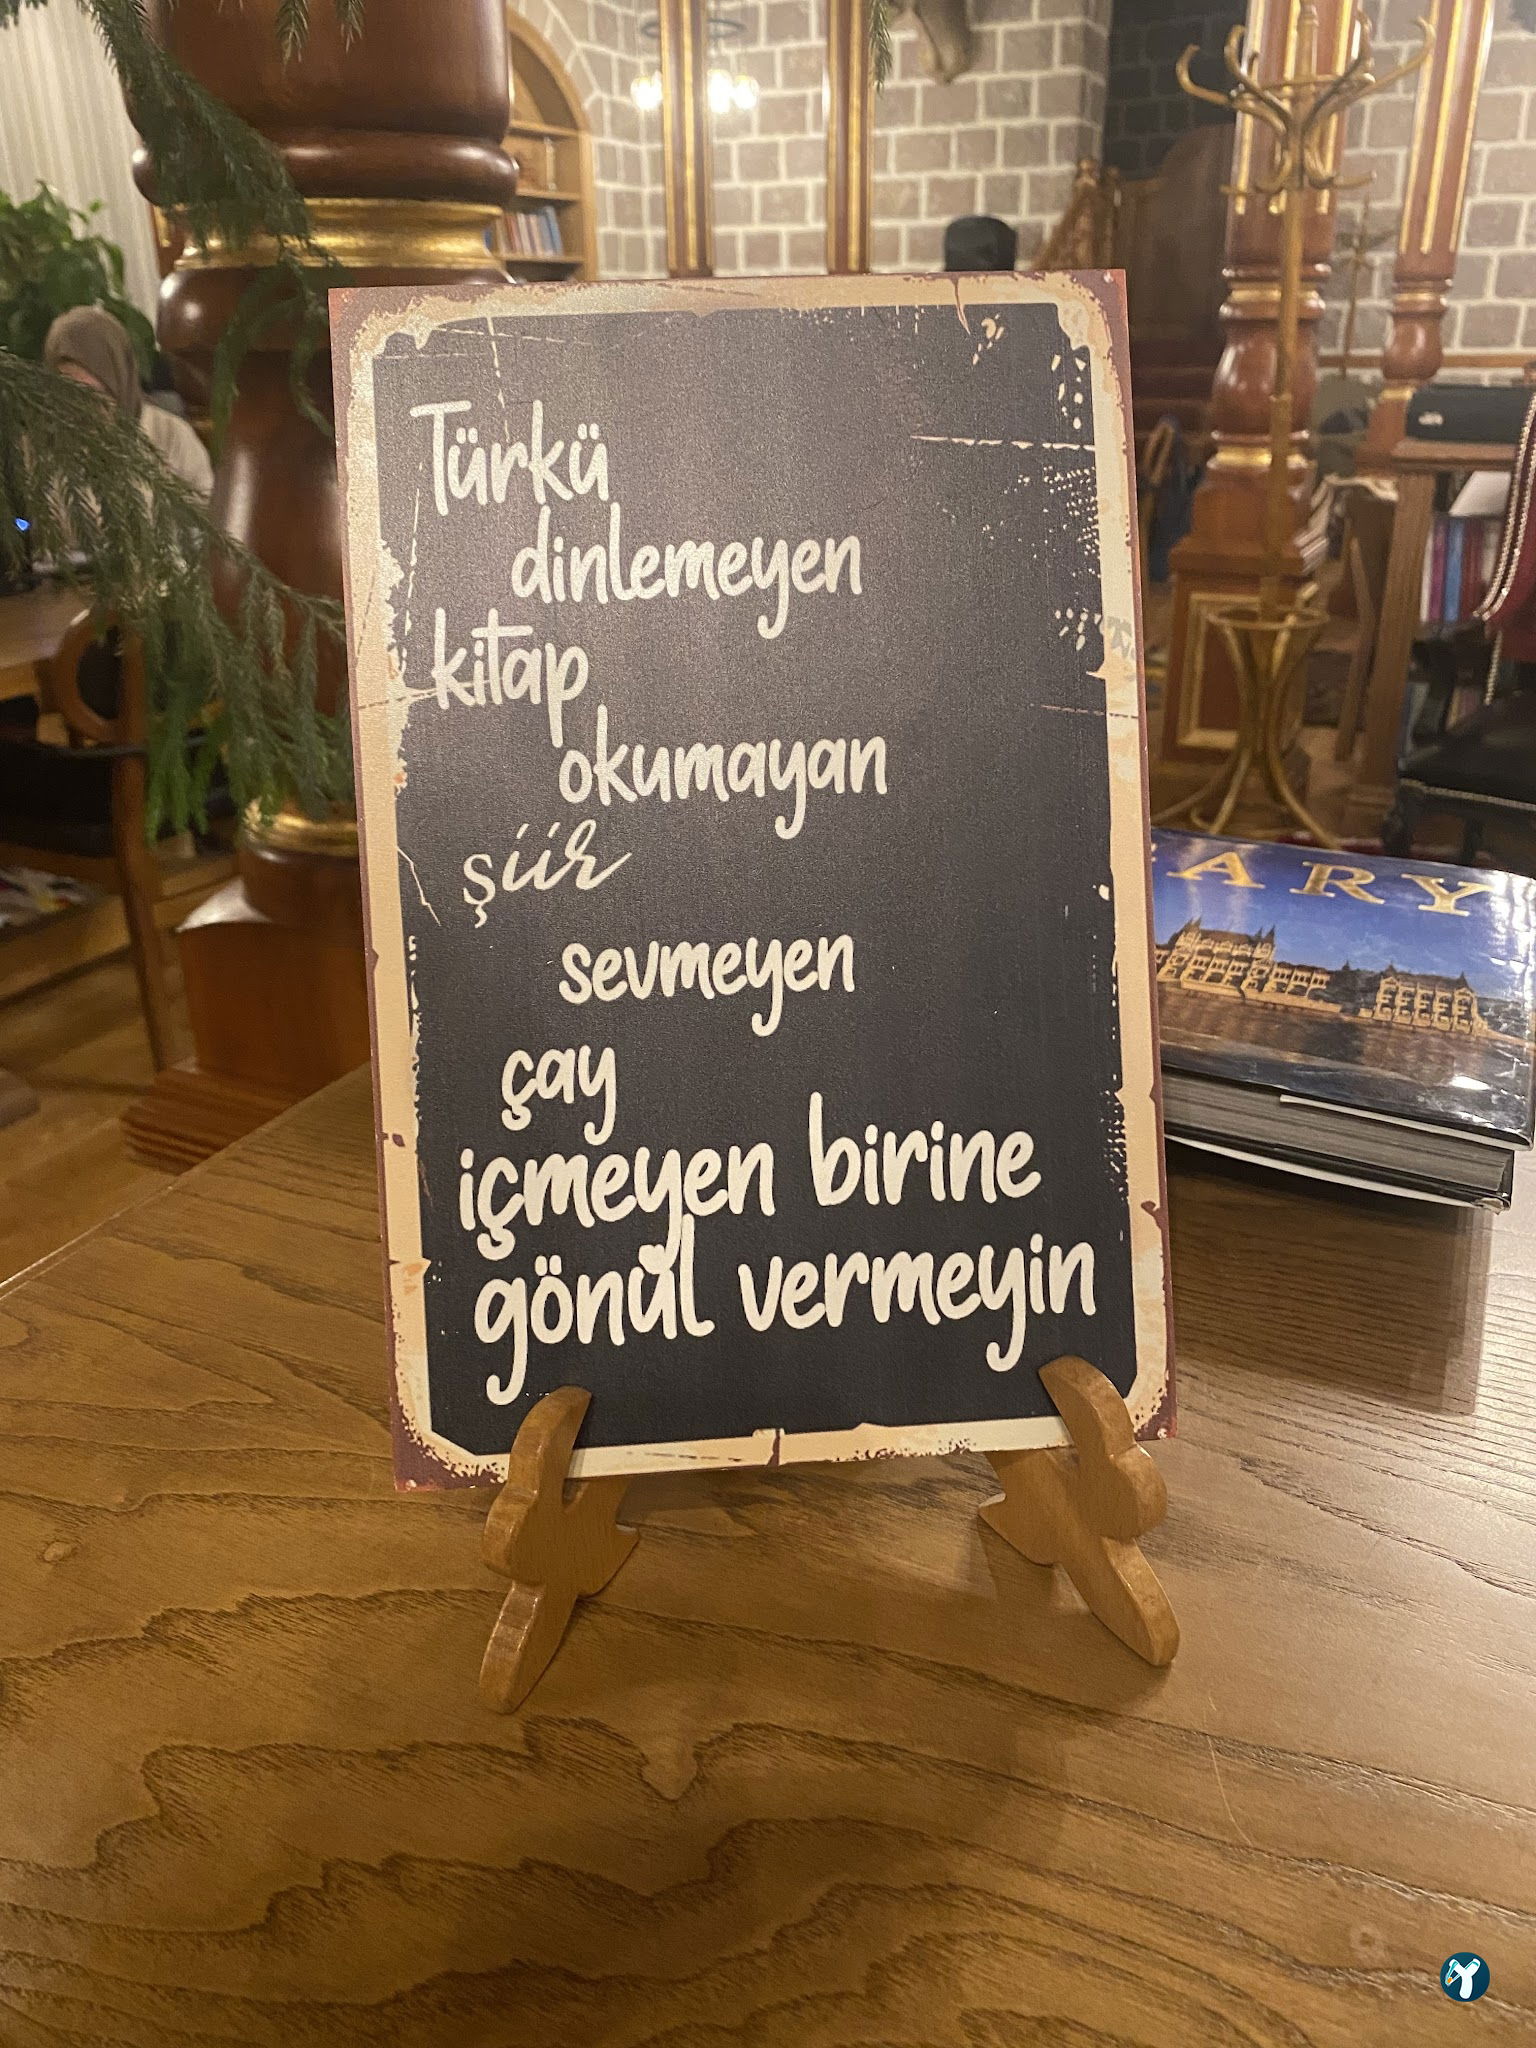 Türkü
dinlemeyen
kitap
okumayan
şiir
sevmeyen
çay
içmeyen birine
gönül vermeyin
ARY